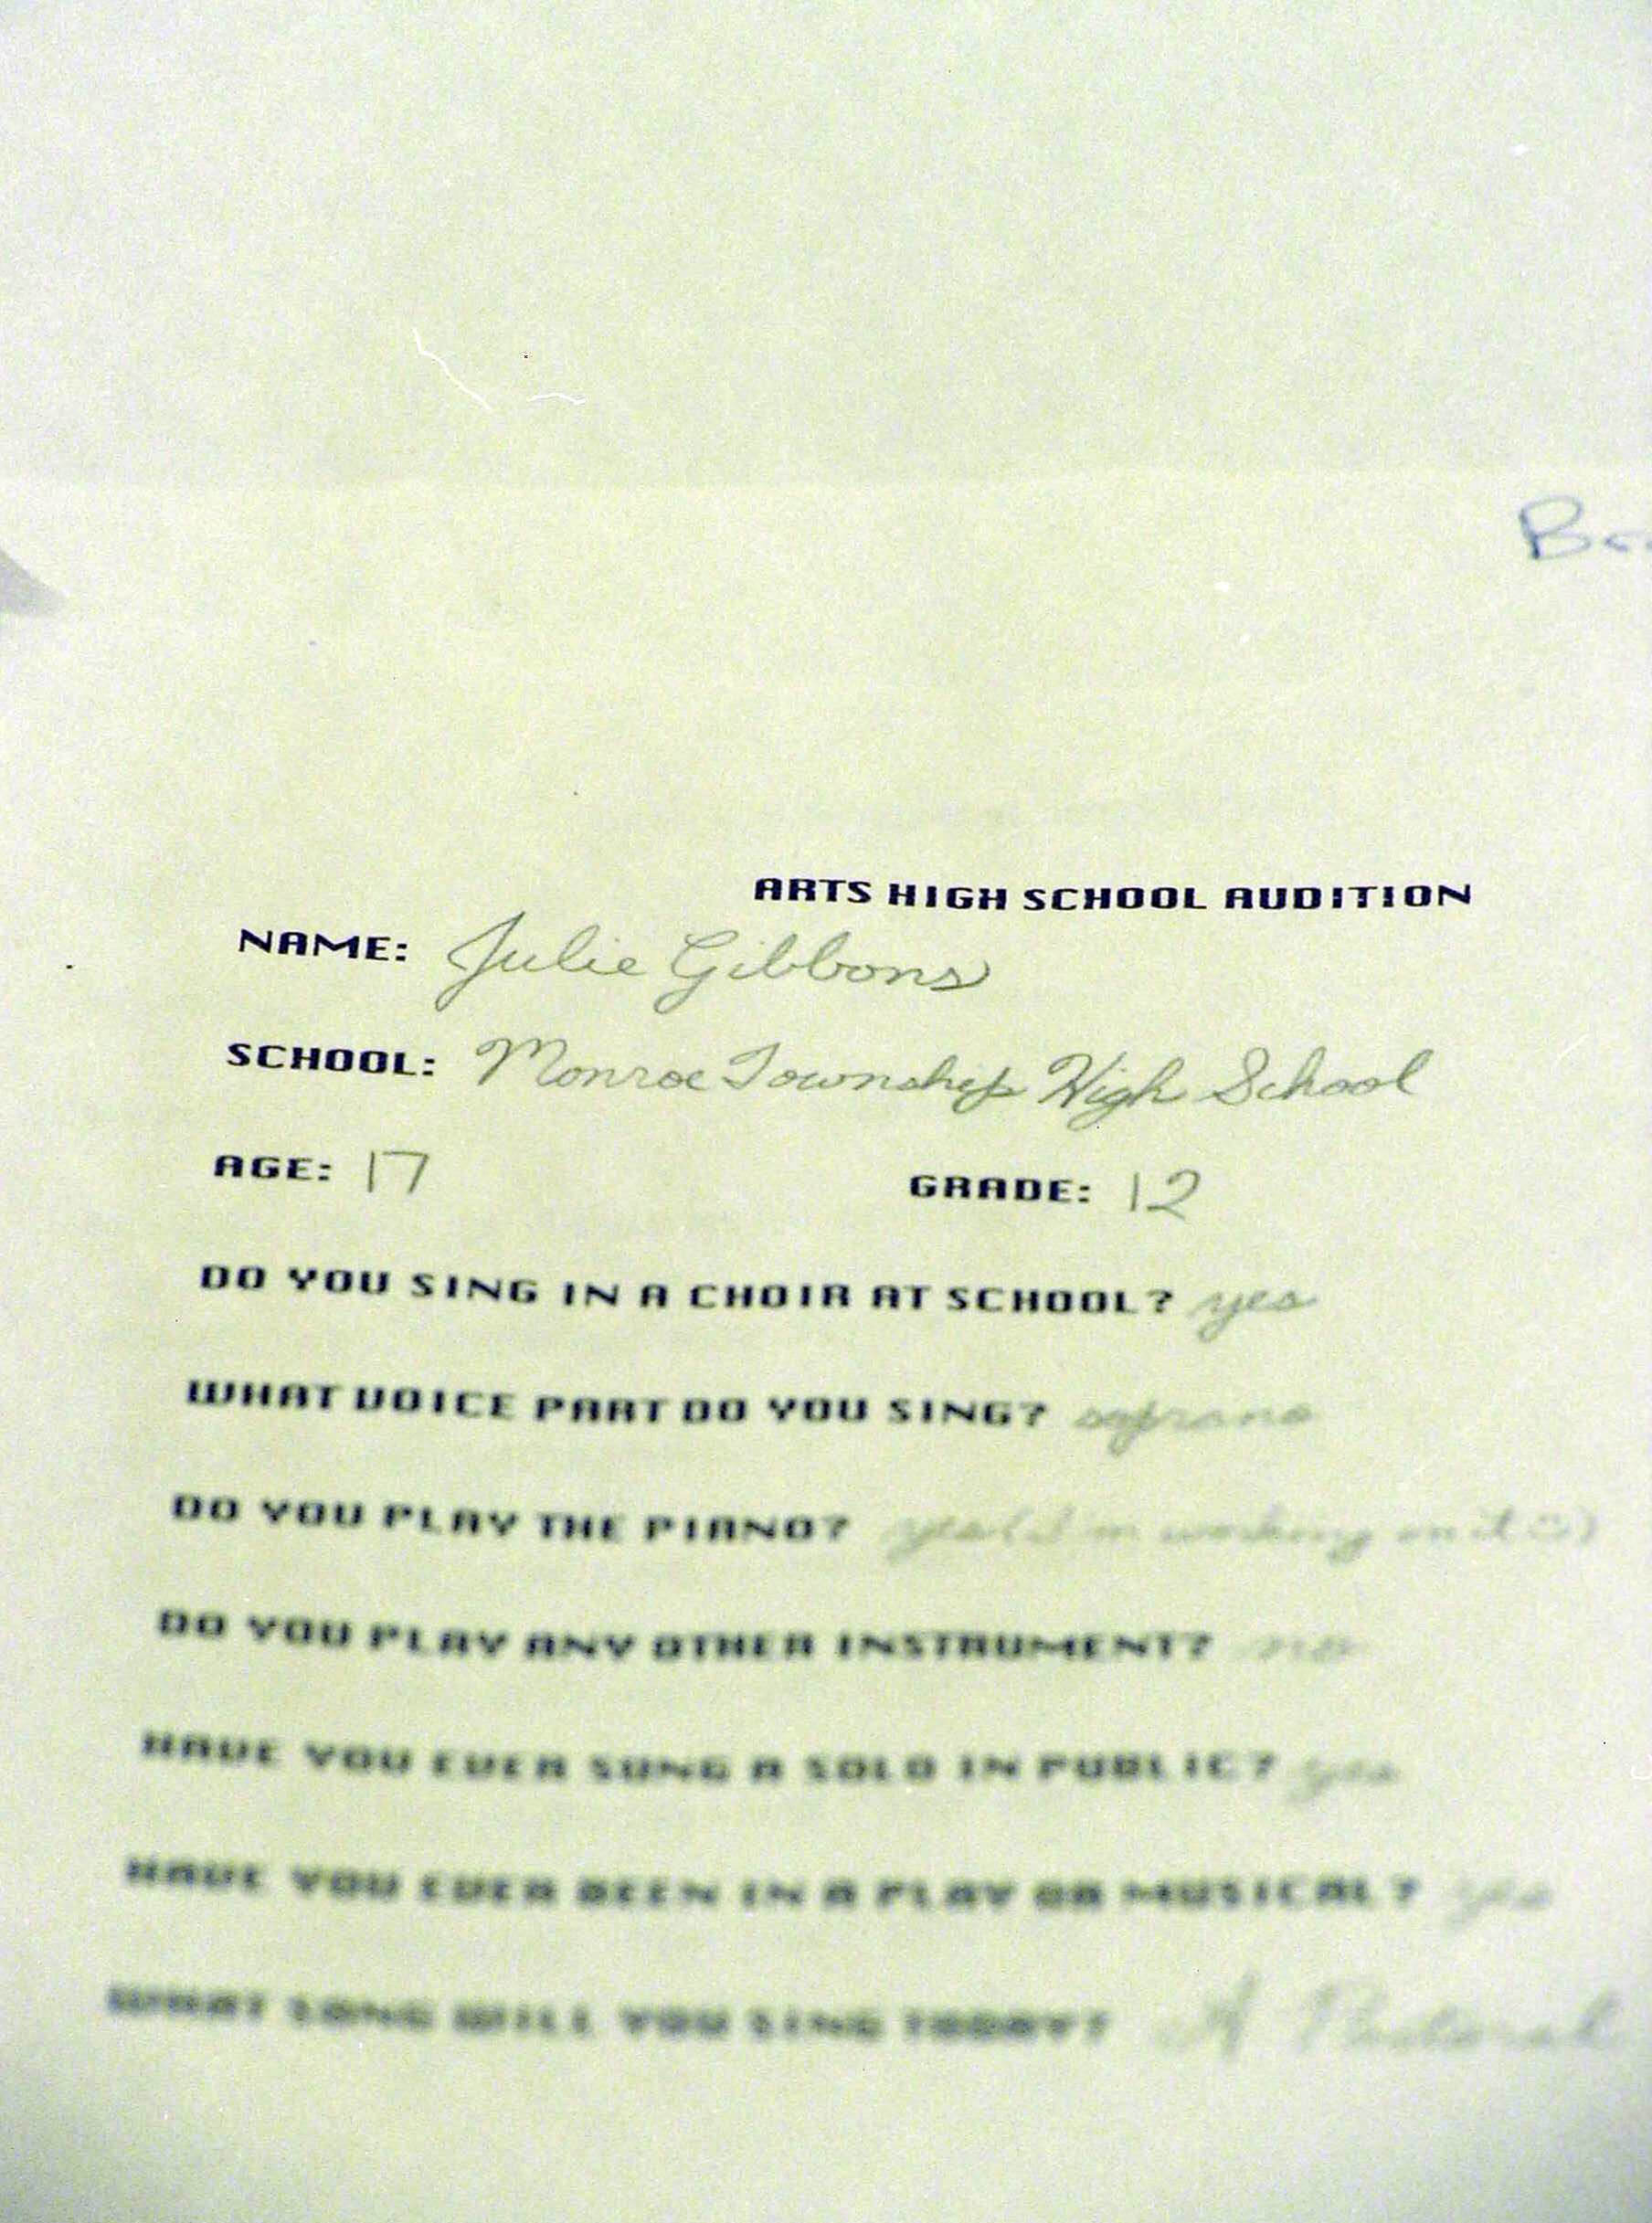 ARTS HIGH SCHOOL AUDITION
NAME: Julie Gibbons
SCHOOL: Monroe Township High School
AGE: 17 GRADE: 12
DO YOU SING IN A CHOIR AT SCHOOL? yes
WHAT VOICE PART DO YOU SING? soprano
DO YOU PLAY THE PIANO? yes (I'm working on it ☺)
DO YOU PLAY ANY OTHER INSTRUMENT? no
HAVE YOU EVER SUNG A SOLO IN PUBLIC? yes
HAVE YOU EVER BEEN IN A PLAY OR MUSICAL? yes
WHAT SONG WILL YOU SING TODAY? A Pastoral